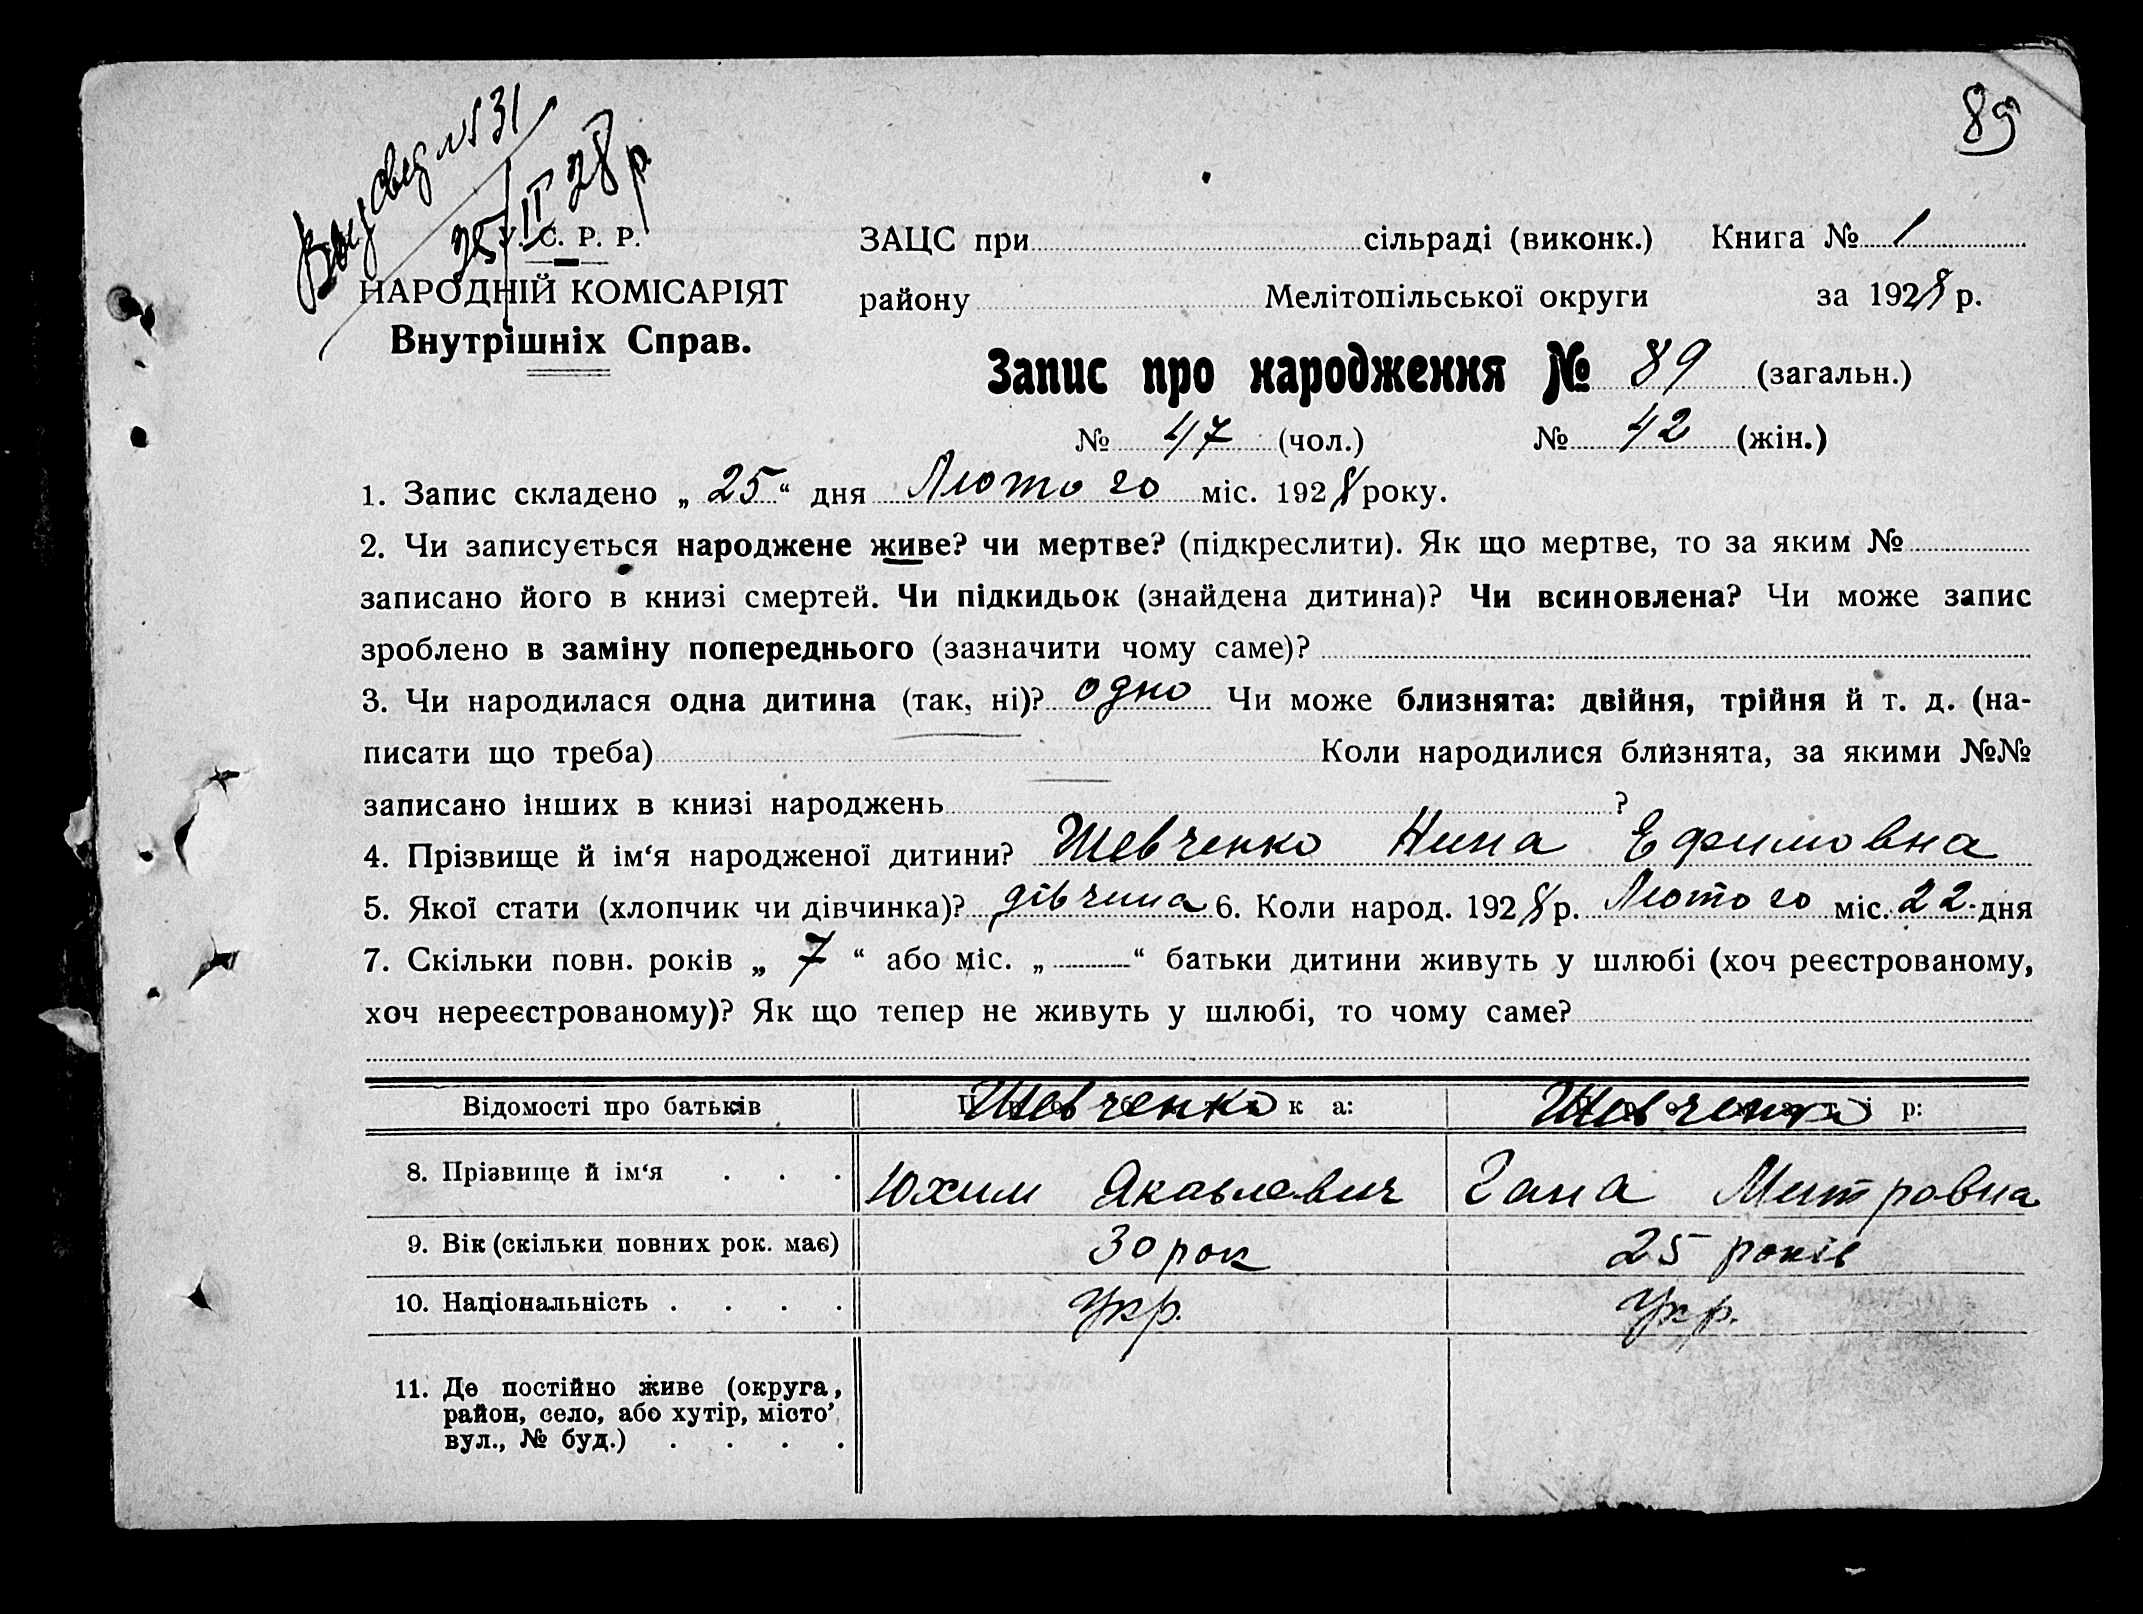 89
свед №31
25/II 28 р.
У. С. Р. Р.
НАРОДНІЙ КОМІСАРІЯТ
Внутрішніх Справ.
ЗАЦС при сільраді (виконк.) Книга № 1
району Мелітопільської округи за 1928 р.
Запис про народження № 89 (загальн.)
№ 47 (чол.) № 42 (жін.)
1. Запис складено „ 25 “ дня Лютого міс. 1928 року.
2. Чи записується народжене живе? чи мертве? (підкреслити). Як що мертве, то за яким №
записано його в книзі смертей. Чи підкидьок (знайдена дитина)? Чи всиновлена? Чи може запис
зроблено в заміну попереднього (зазначити чому саме)?
3. Чи народилася одна дитина (так, ні)? одно Чи може близнята: двійня, трійня й т. д. (на-
писати що треба) Коли народилися близнята, за якими №№
записано інших в книзі народжень ?
4. Прізвище й ім‘я народженої дитини? Шевченко Нина Ефимовна
5. Якої стати (хлопчик чи дівчинка)? дівчина 6. Коли народ. 1928 р. Лютого міс. 22 дня
7. Скільки повн. років „ 7 “ або міс. „ “ батьки дитини живуть у шлюбі (хоч реєстрованому,
хоч нереєстрованому)? Як що тепер не живуть у шлюбі, то чому саме?
Відомості про батьків Шевченко ка: Шевченко р:
8. Прізвище й ім‘я . . . Юхим Якавлевич Гана Митровна
9. Вік (скільки повних рок. має) 30 рок 25 років
10. Національність . . . . Укр. Укр.
11. Де постійно живе (округа,
район, село, або хутір, місто’
вул., № буд.) . . . .